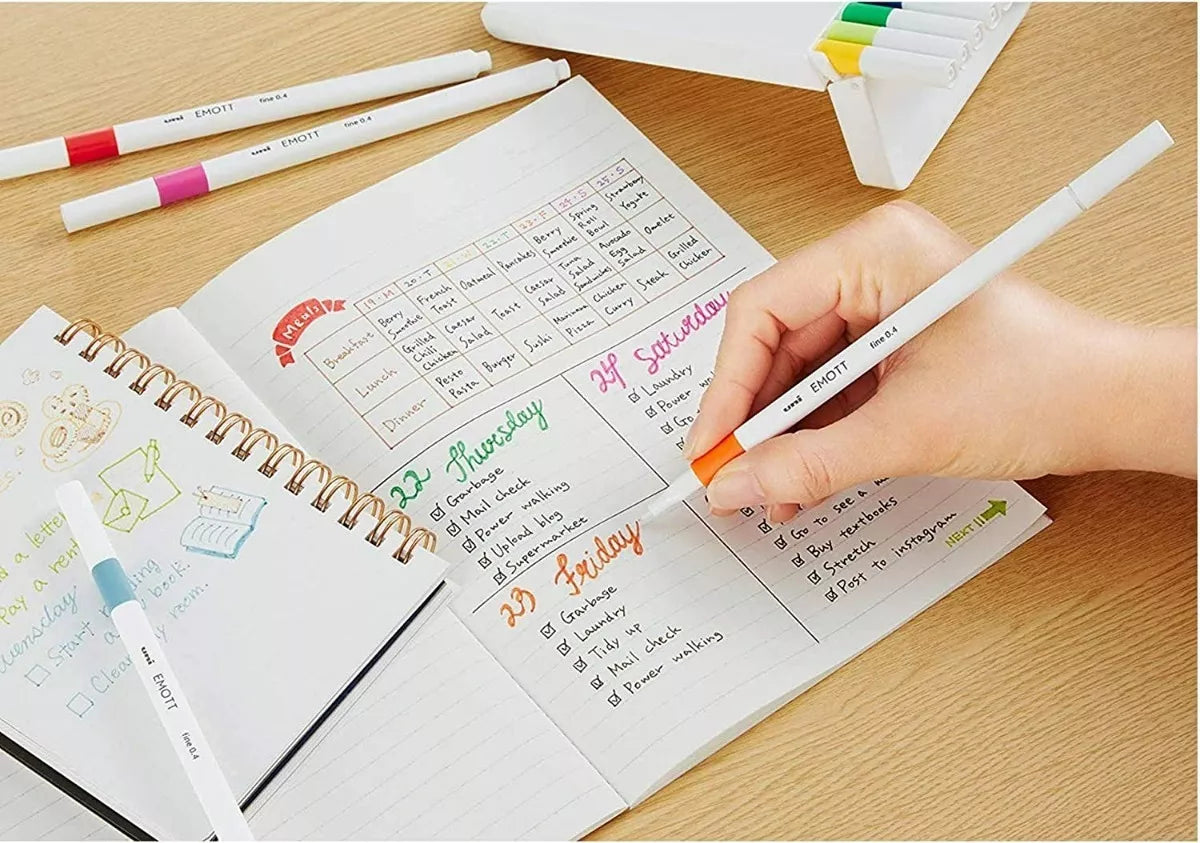 uni EMOTT fine 0.4
uni EMOTT fine 0.4
Meals
19・M 20・T 21・W 22・T 23・F 24・S 25・S
Breakfast Berry Smoothie French Toast Oatmeal Pancakes Berry Smoothie Spring Roll Bowl Strawberry
Lunch Grilled Chili Chicken Caesar Salad Toast Caesar Salad Tuna Salad Sandwiches Avocado Egg Salad Omelet
Dinner Pesto Pasta Burger Sushi Pizza Chicken Curry Steak Grilled Chicken
22 Thursday
Garbage
Mail check
Power walking
Upload blog
Supermarket
23 Friday
Garbage
Laundry
Tidy up
Mail check
Power walking
24 Saturday
Laundry
Power
Go
Go to see a
Buy textbooks
Stretch
Post to instagram
NEXT!!
uni EMOTT fine 0.4
a letter
Pay a
Start
book.
Clean room.
uni EMOTT fine 0.4